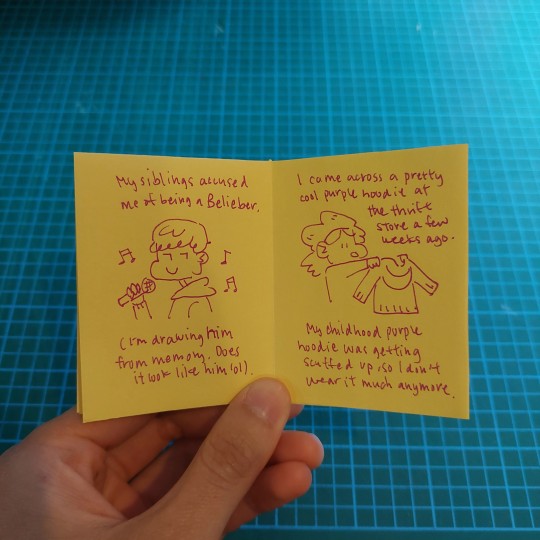 My siblings accused
me of being a Belieber.
(I'm drawing him
from memory. Does
it look like him lol).
I came across a pretty
cool purple hoodie at
the thrift
store a few
weeks ago.
My childhood purple
hoodie was getting
scuffed up, so I don't
wear it much anymore.